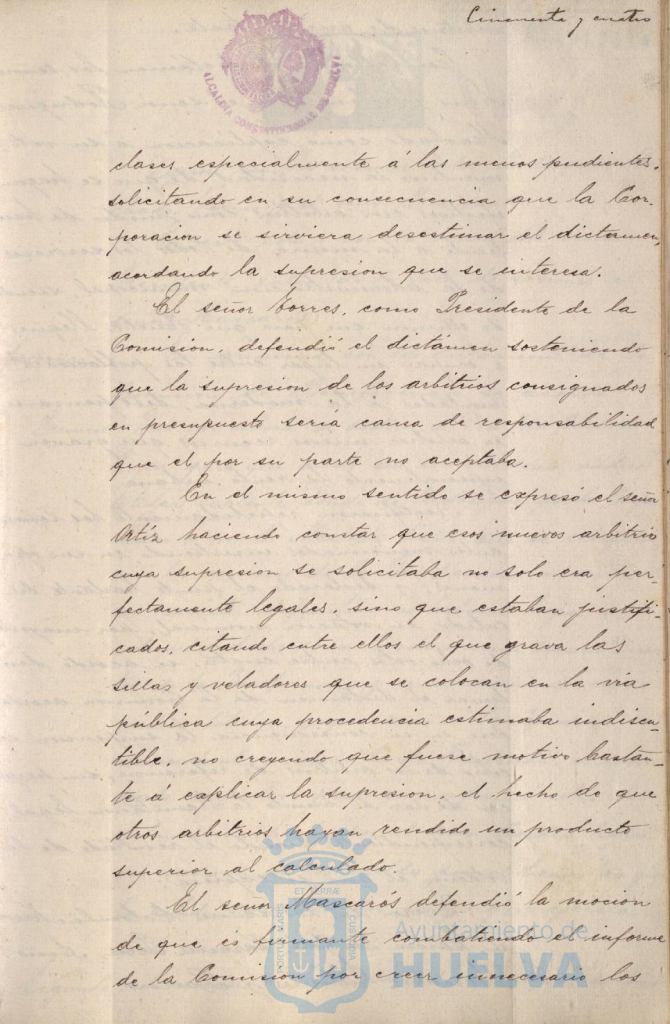 Cincuenta y cuatro
ALCALDIA CONSTITUCIONAL DE HUELVA
clases especialmente á las menos pudientes,
solicitando en su consecuencia que la Cor-
poracion se sirviera desestimar el dictamen,
acordando la supresion que se interesa.
El señor Torres, como Presidente de la
Comision, defendió el dictámen sosteniendo
que la supresion de los arbitrios consignados
en presupuesto seria causa de responsabilidad
que el por su parte no aceptaba.
En el mismo sentido se expresó el señor
Ortíz haciendo constar que esos nuevos arbitrios
cuya supresion se solicitaba no solo era per-
fectamente legales, sino que estaban justifi-
cados, citando entre ellos el que grava las
sillas y veladores que se colocan en la via
pública cuya procedencia estimaba indiscu-
tible, no creyendo que fuese motivo bastan-
te á explicar la supresion, el hecho de que
otros arbitrios hayan rendido un producto
superior al calculado.
El señor Mascarós defendió la mocion
de que es firmante combatiendo el informe
de la Comision por creer innecesario los
PORTUS MARIS ET TERRÆ CUSTODIA
Ayuntamiento de
HUELVA